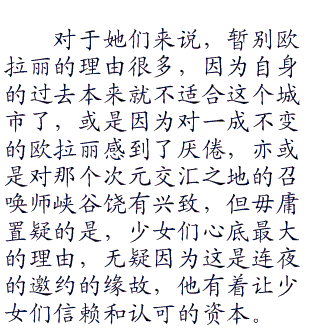 对于她们来说，暂别欧
拉丽的理由很多，因为自身
的过去本来就不适合这个城
市了，或是因为对一成不变
的欧拉丽感到了厌倦，亦或
是对那个次元交汇之地的召
唤师峡谷饶有兴致，但毋庸
置疑的是，少女们心底最大
的理由，无疑因为这是连夜
的邀约的缘故，他有着让少
女们信赖和认可的资本。